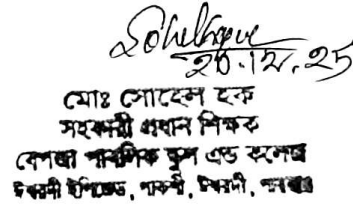 Sohelhque
20.12.25
মোঃ সোহেল হক
সহকারী প্রধান শিক্ষক
পাবলিক স্কুল এন্ড কলেজ
ঈশ্বরদী ইপিজেড, পাকশী, ঈশ্বরদী, পাবনা